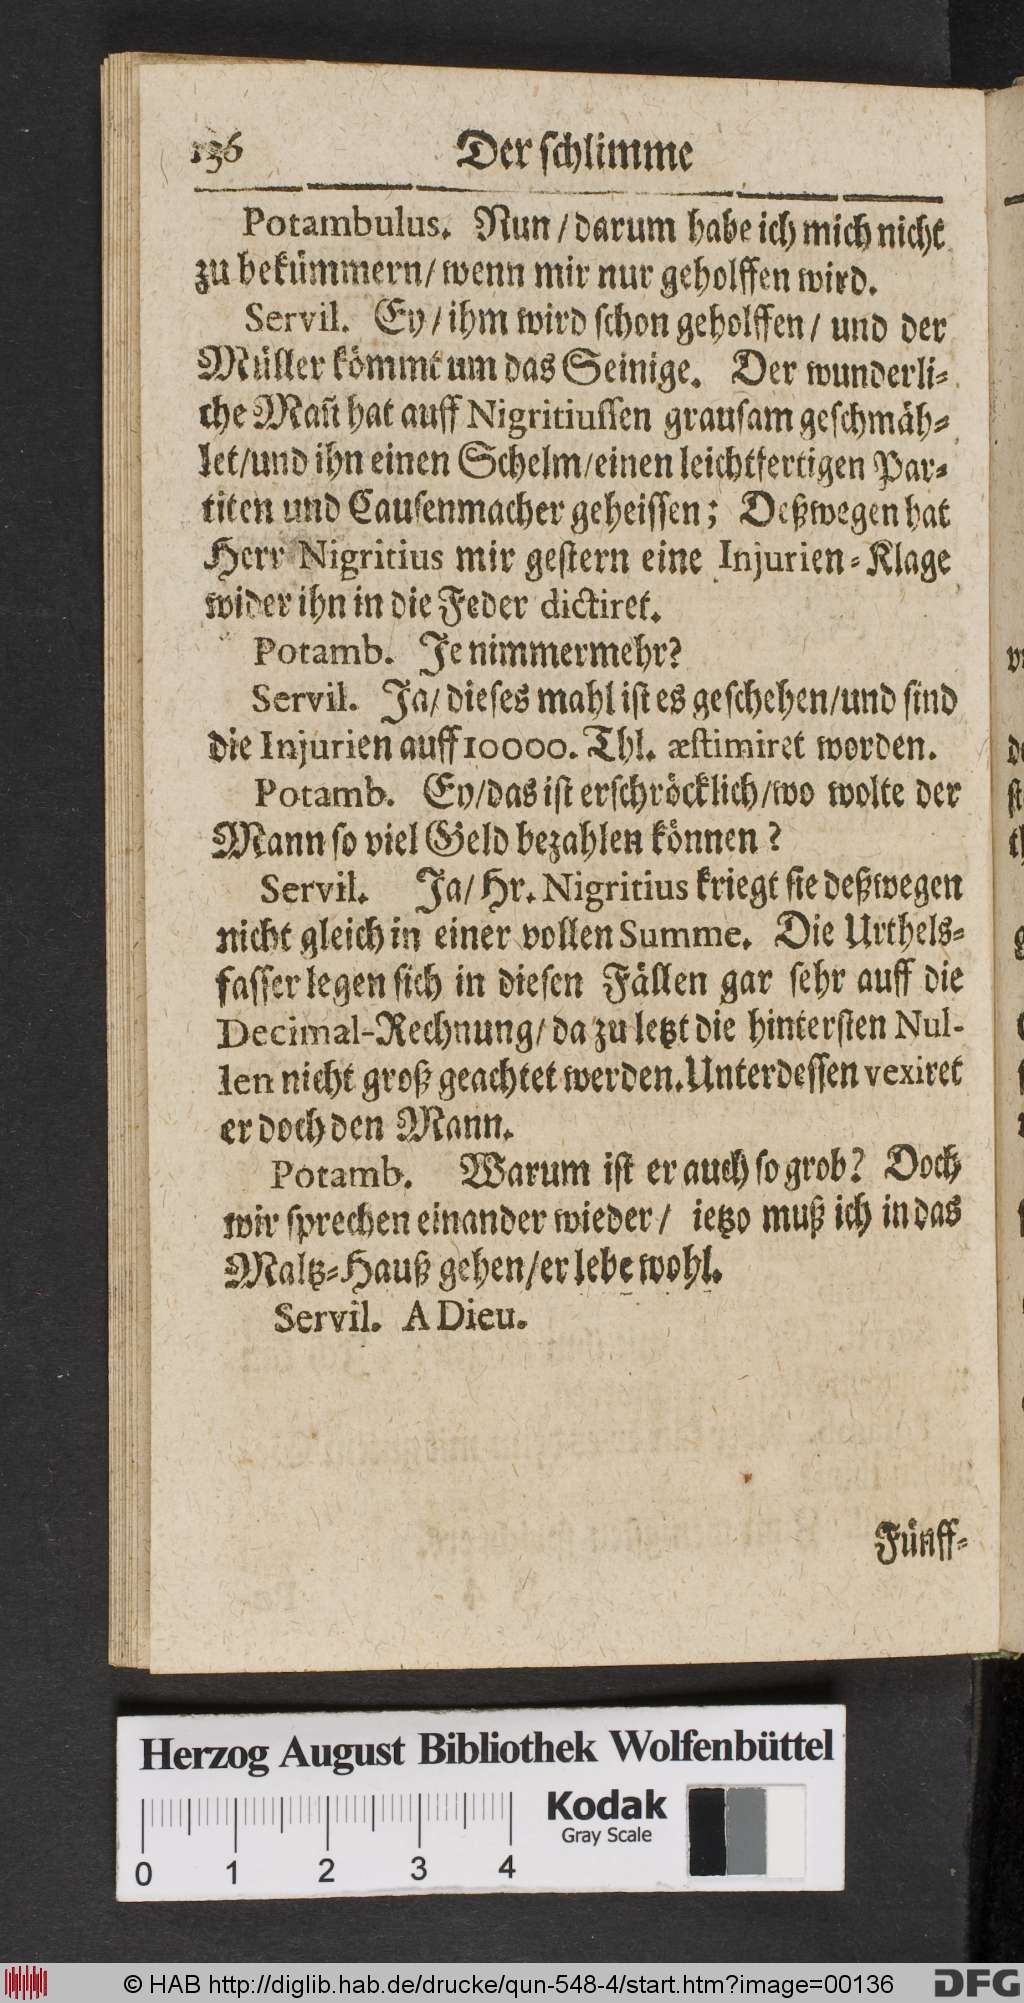 136 Der schlimme
Potambulus. Nun / darum habe ich mich nicht
zu bekümmern/ wenn mir nur geholffen wird.
Servil. Ey / ihm wird schon geholffen / und der
Müller kömmt um das Seinige. Der wunderli-
che Mañ hat auff Nigritiussen grausam geschmäh-
let/und ihn einen Schelm/einen leichtfertigen Par-
titen und Causenmacher geheissen; Deßwegen hat
Herr Nigritius mir gestern eine Injurien-Klage
wider ihn in die Feder dictiret.
Potamb. Je nimmermehr?
Servil. Ja/ dieses mahl ist es geschehen/und sind
die Injurien auff 10000. Thl. æstimiret worden.
Potamb. Ey/das ist erschröcklich/wo wolte der
Mann so viel Geld bezahlen können?
Servil. Ja/ Hr. Nigritius kriegt sie deßwegen
nicht gleich in einer vollen Summe. Die Urthels-
fasser legen sich in diesen Fällen gar sehr auff die
Decimal-Rechnung/ da zu letzt die hintersten Nul-
len nicht groß geachtet werden. Unterdessen vexiret
er doch den Mann.
Potamb. Warum ist er auch so grob? Doch
wir sprechen einander wieder / ietzo muß ich in das
Maltz-Hauß gehen/er lebe wohl.
Servil. A Dieu.
Fünff-
Herzog August Bibliothek Wolfenbüttel
Kodak
Gray Scale
0 1 2 3 4
© HAB http://diglib.hab.de/drucke/qun-548-4/start.htm?image=00136
DFG